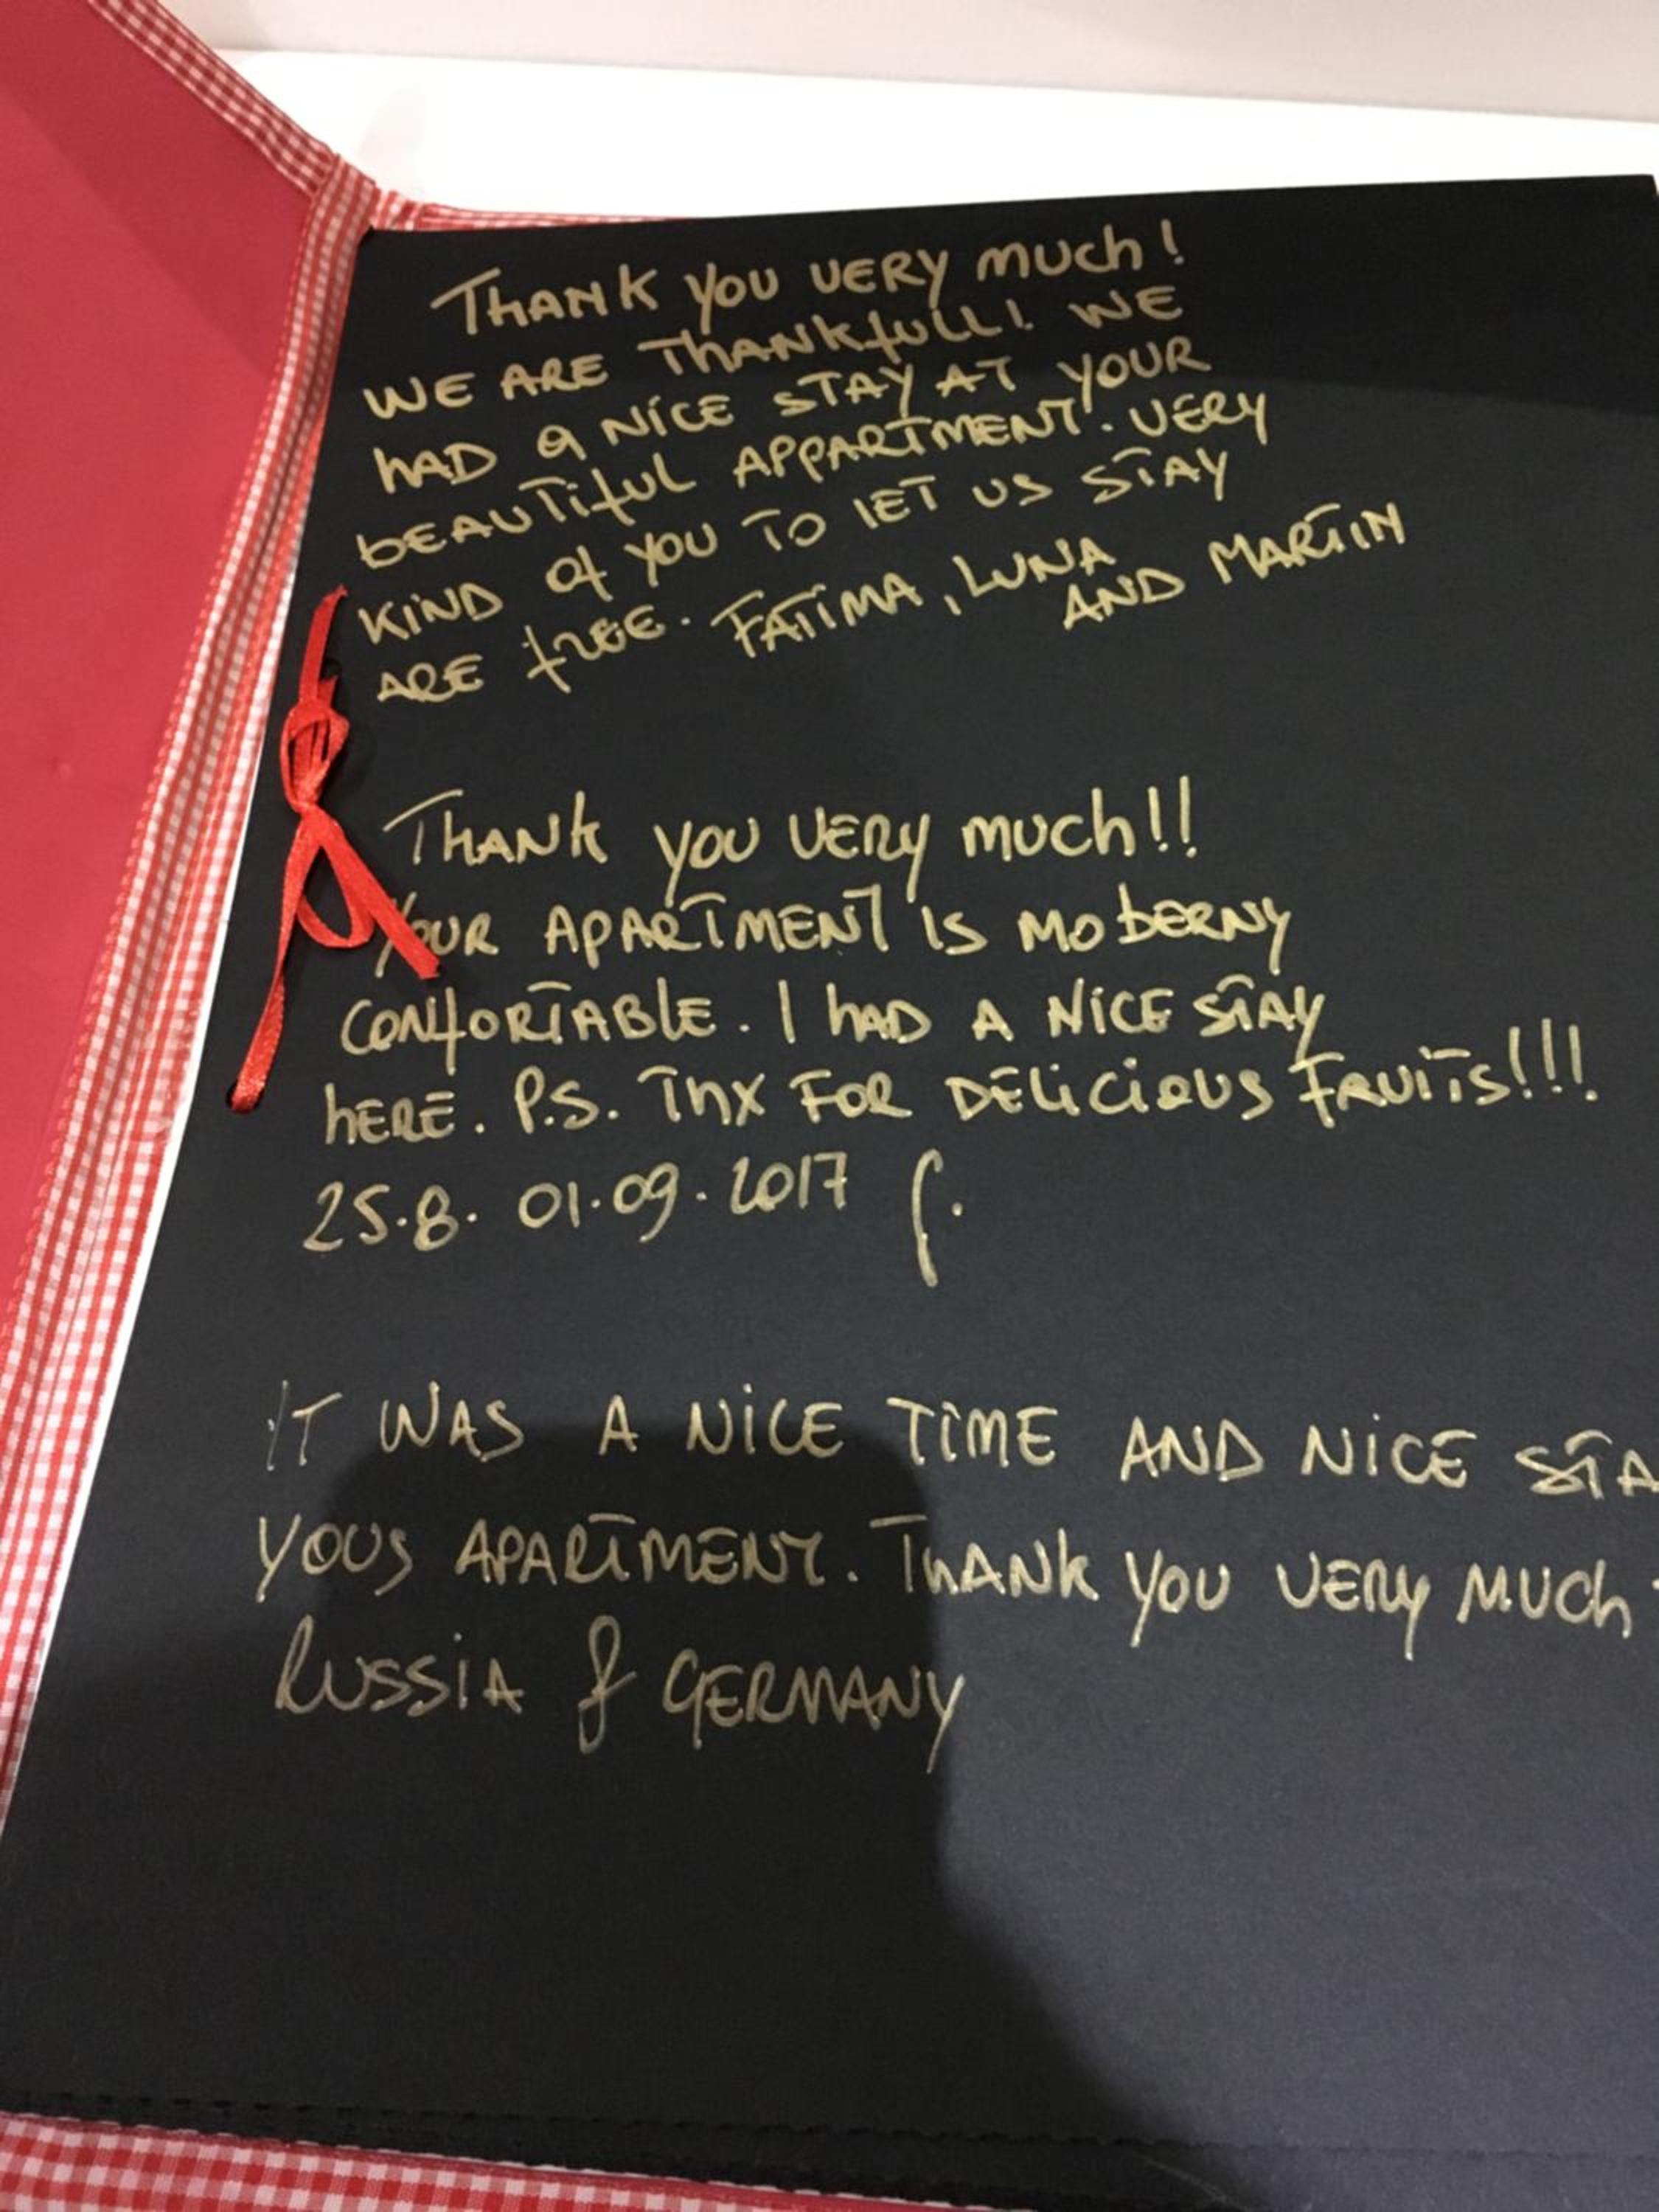 THANK YOU VERY MUCH!
WE ARE THANKFULL! WE
HAD A NICE STAY AT YOUR
BEAUTIFUL APPARTMENT. VERY
KIND OF YOU TO LET US STAY
ARE FREE. FATIMA, LUNA
AND MARTIN
THANK YOU VERY MUCH!!
YOUR APARTMENT IS MODERNY
CONFORTABLE. I HAD A NICE STAY
HERE. P.S. THX FOR DELICIOUS FRUITS!!!
25.8. 01.09.2017
IT WAS A NICE TIME AND NICE STA
YOUS APARTMENT. THANK YOU VERY MUCH
RUSSIA & GERMANY